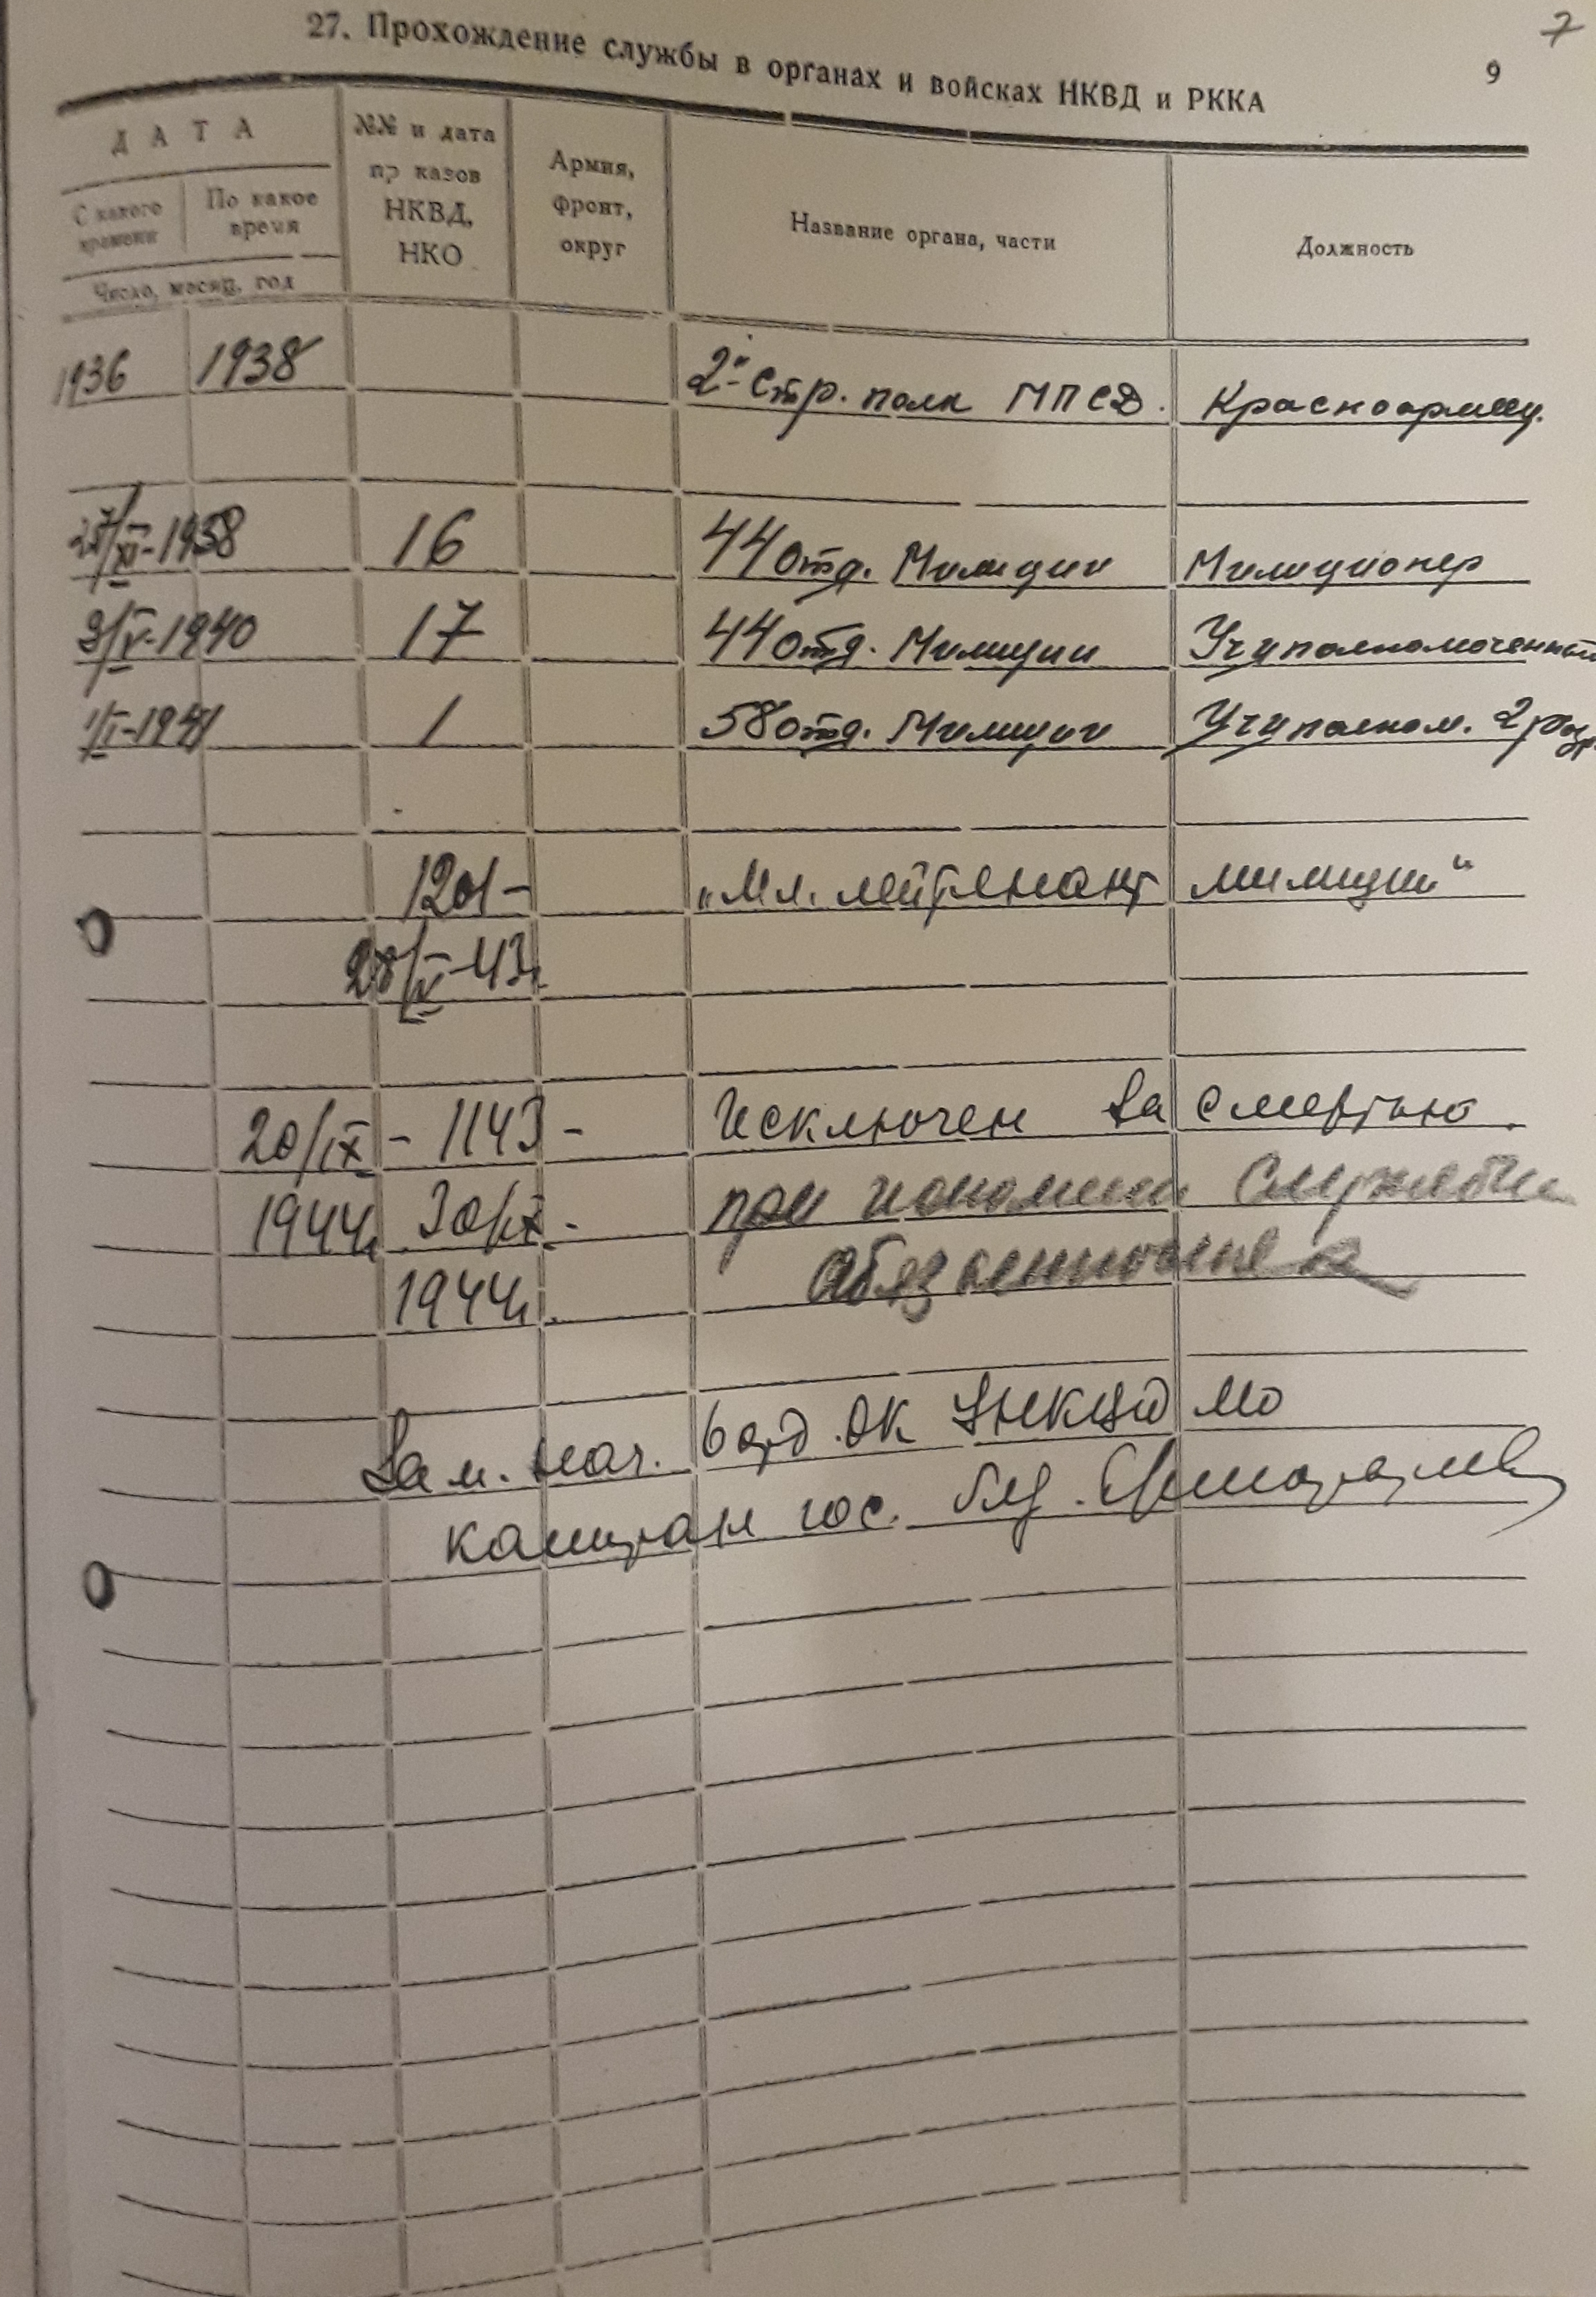 7
27. Прохождение службы в органах и войсках НКВД и РККА
9
ДАТА
№№ и дата пр казов НКВД, НКО
Армия, фронт, округ
Название органа, части
Должность
С какого времени
По какое время
Число, месяц, год
1936 1938 2й Стр. полк МПСД. Красноармеец.
27/XI-1938 16 44 отд. Милиции Милиционер
3/IV-1940 17 44 отд. Милиции Уч. уполномоченный
1/I-1941 1 58 отд. Милиции Уч. уполном. 2 разр.
1201- „Мл. лейтенант милиции"
28/IV-43г.
20/IX - 1143 - Исключен за смертью.
1944г. 30/IX. при исполнении служебных
1944г. обязанностей
Зам. нач. 6 отд. ОК УНКВД МО
капитан гос. без.